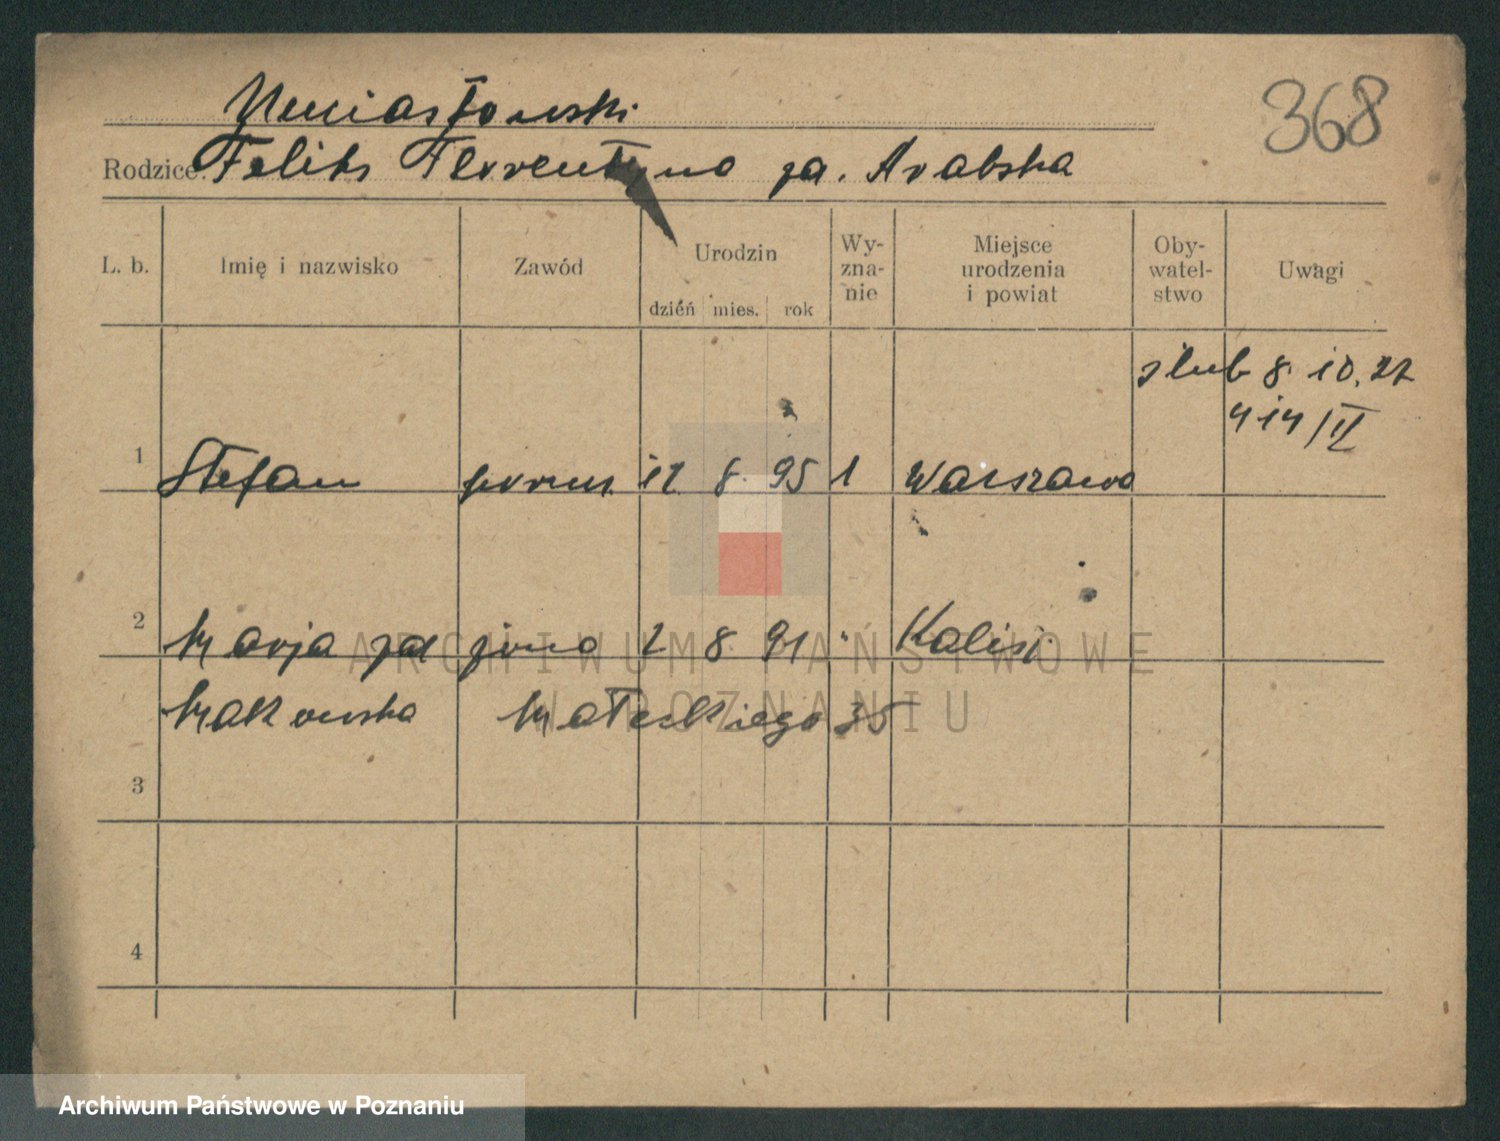 368
Umiastowski
Rodzice: Feliks Florentyna za. Arabska
L. b. Imię i nazwisko Zawód Urodzin dzień mies. rok Wy-zna-nie Miejsce urodzenia i powiat Oby-watel-stwo Uwagi
ślub 8. 10. 27
414/II
1 Stefan 12 8. 95 1 Warszawa
2 Marja zd żona 2 8 91 " Kalisz
Makowska Małeckiego 35
3
4
ARCHIWUM PAŃSTWOWE
W POZNANIU
Archiwum Państwowe w Poznaniu